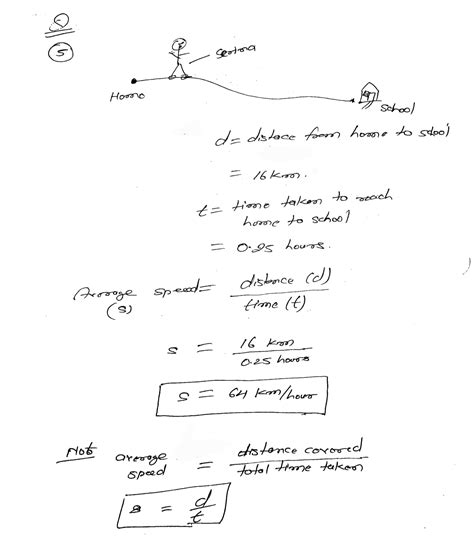 5
Home
School
d = distace from home to
= 16 km.
t = time taken to reach
home to school
= 0.25 hours.
Average speed = distance (d) / time (t)
(s)
s = 16 km / 0.25 hours
s = 64 km/hour
Not average speed = distance covered / total time taken
s = d / t